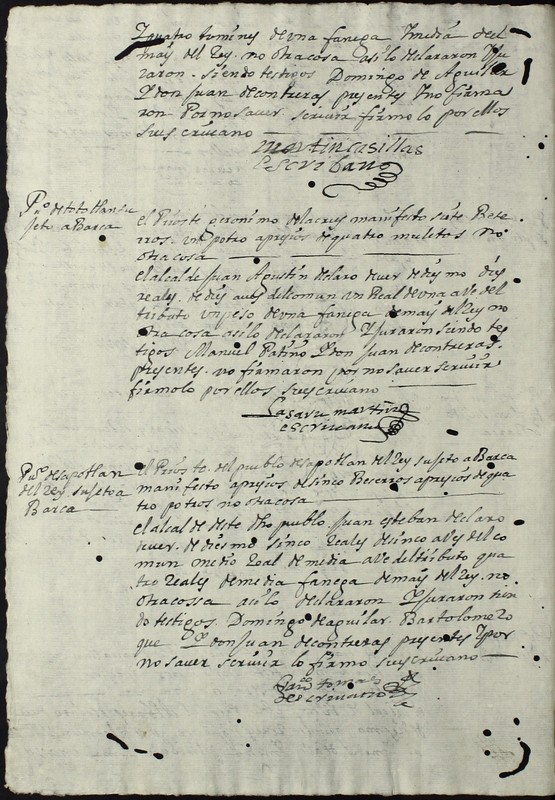 quatro tumines de una fanega y media del
mais del Rey. no otra cosa asi lo declararon y Ju
raron. siendo testigos Domingo de Aguilar
y don Juan de contreras presentes y no firma
ron Por no saver screvir firmolo por ellos
su escrivano
martin casillas
escribano
Puo. de tototlan su
jeto a Barca
el Prioste geronimo de la crus manifesto siete Bese
rros. un potro a presios de quatro muletos no
otra cosa
el alcalde Juan Agustin declaro dever de diesmo dies
reales. de dies aves del comun un Real de una ave del
tributo un peso de una fanega de mais del Rey no
otra cosa asi lo declararon y Juraron siendo tes
tigos Manuel Patiño y don Juan de contreras.
presentes. no firmaron por no saver screvir
firmolo por ellos su escrivano
martin
escrivano
Puo. de sapotlan
del Rey sujeto a
Barca
el Prioste. del pueblo de sapotlan del Rey sujeto a Barca
manifesto a presios de sinco Beserros a presios de qua
tro potros no otra cosa
el alcalde deste dho pueblo Juan esteban declaro
dever. de diesmo sinco reales de sinco aves del co
mun medio Real de media ave del tributo qua
tro reales de media fanega de mais del Rey. no
otra cossa asi lo declararon y Juraron sien
do testigos. Domingo de aguilar. Bartolome Ro
que y don Juan de contreras presentes y por
no saver screvir lo firmo su escrivano
tomas
escrivano